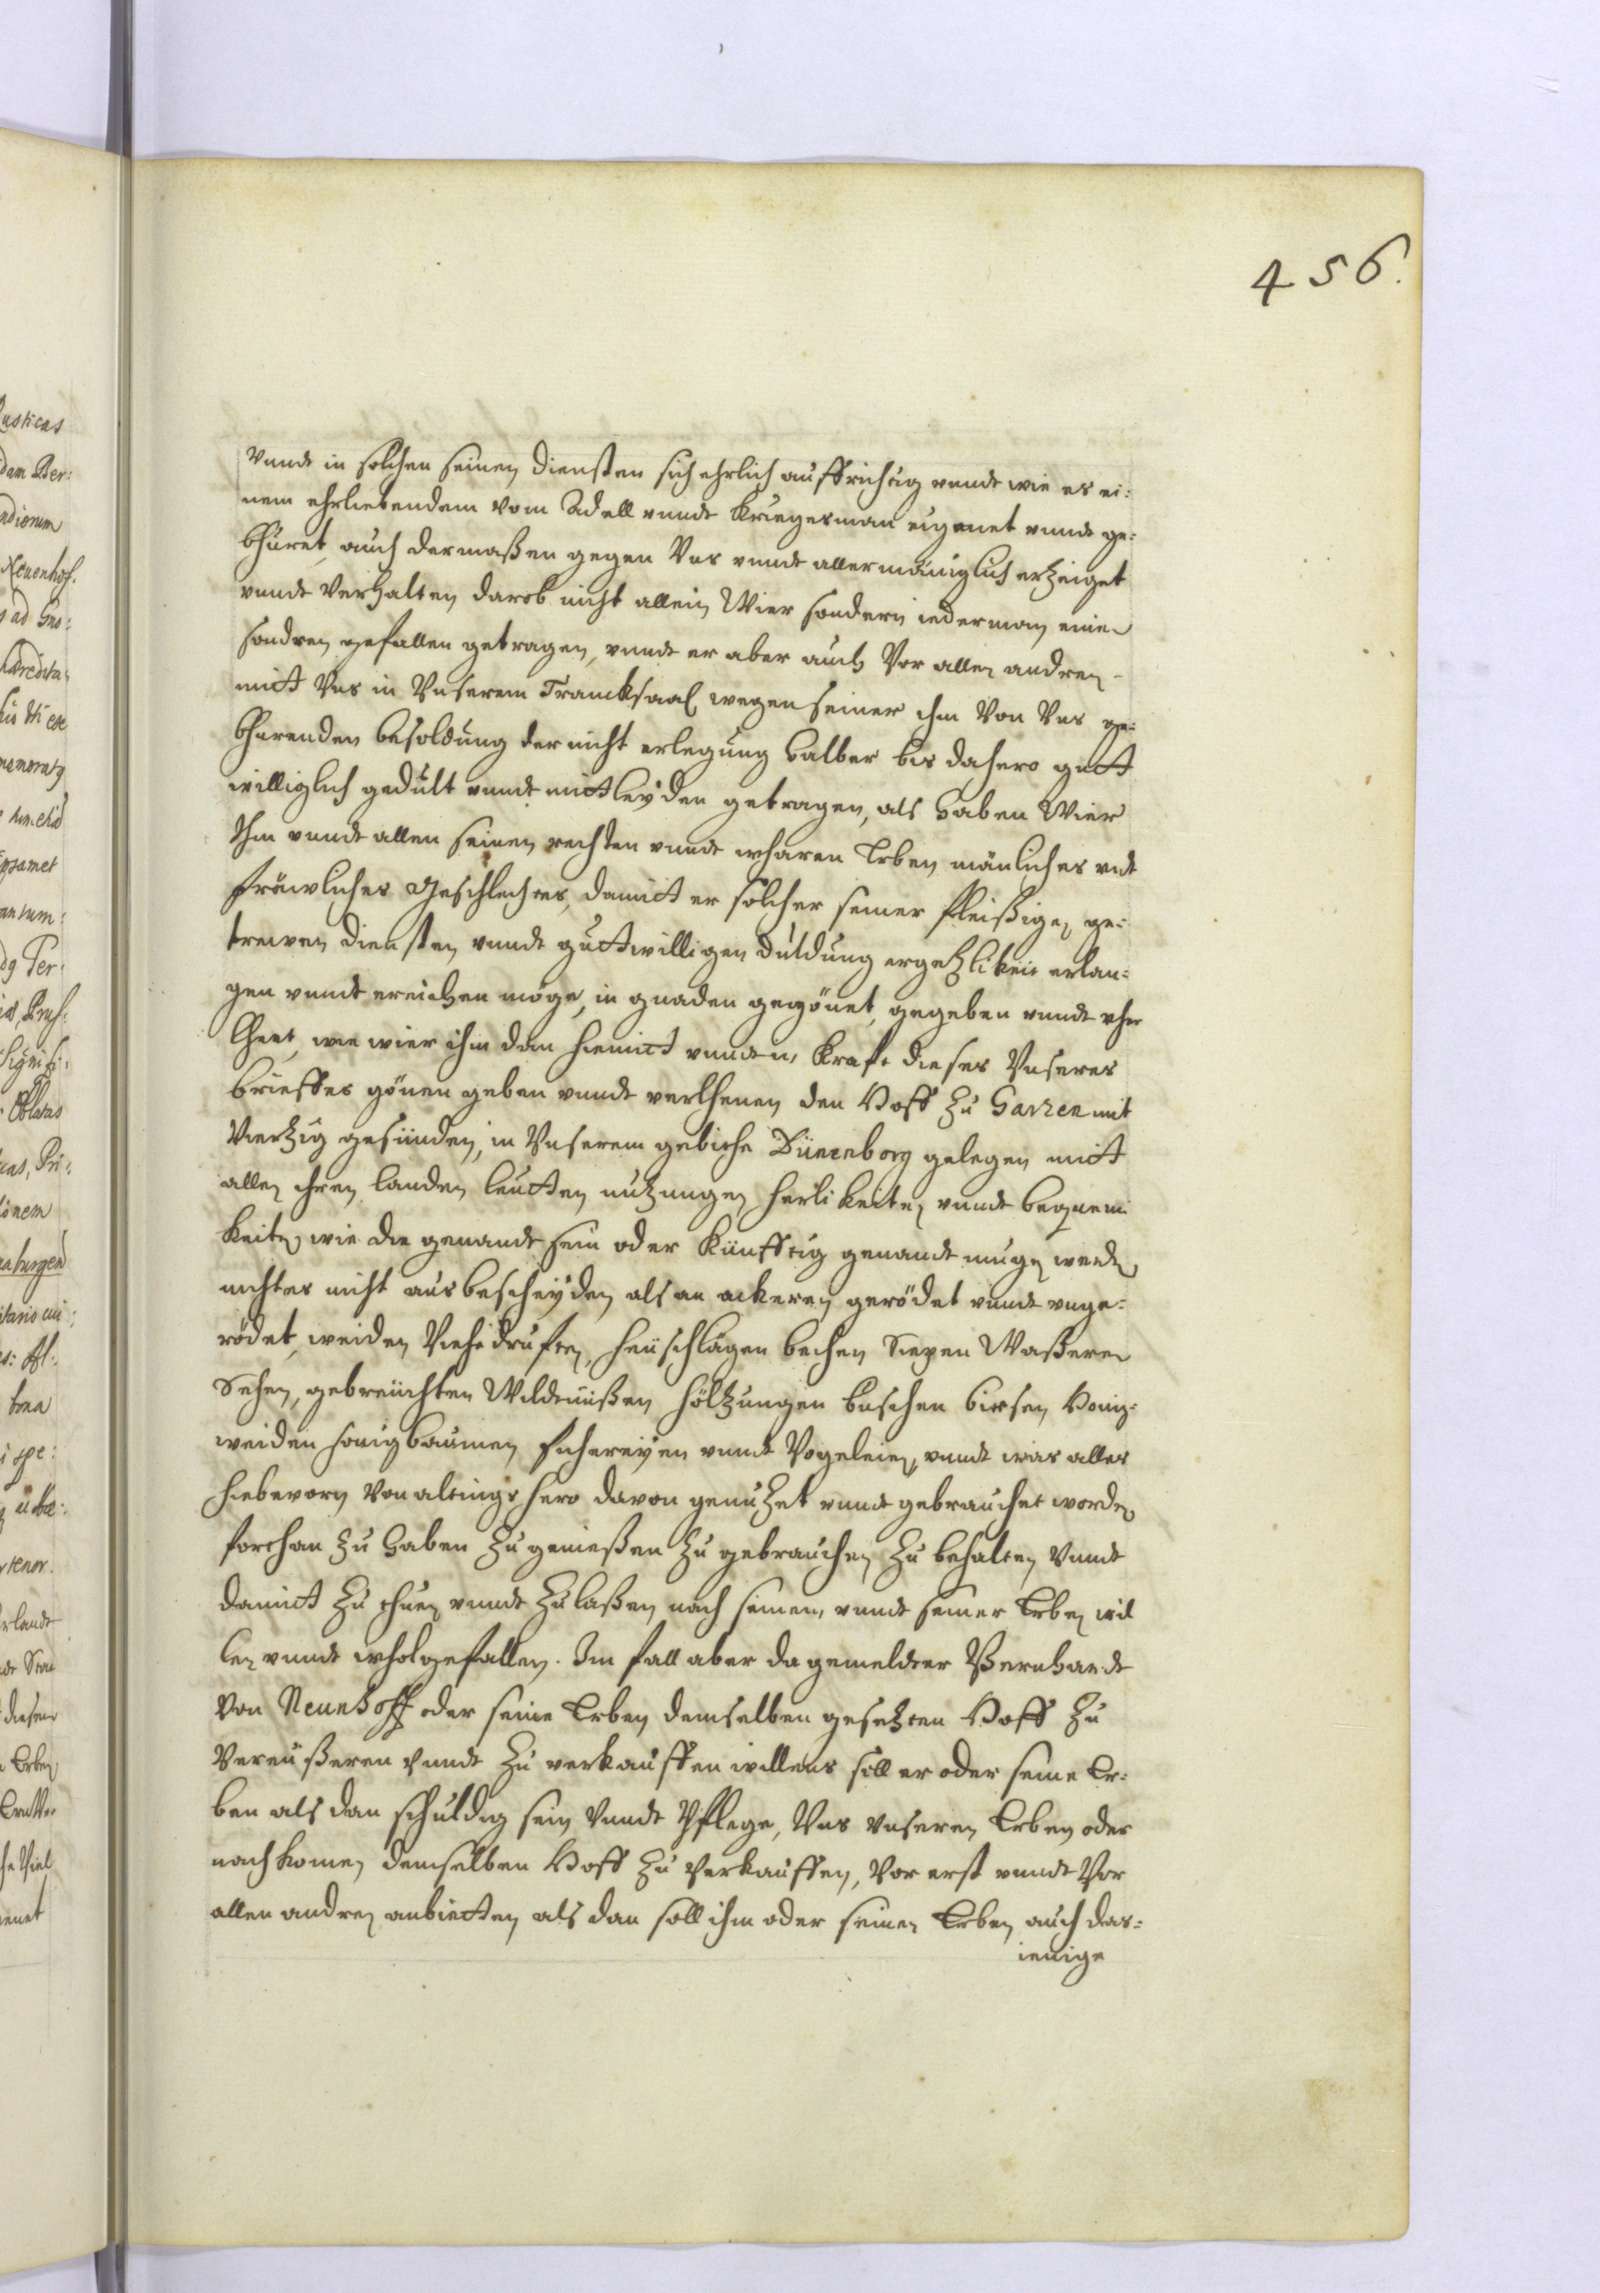 456.
vnndt in solchen seinen diensten sich ehrlich auffrichtig vnndt wie es ei:
nem ehrliebendem vom Adell vnndt Kriegesman eigenet vnndt ge:
bhüret, auch dermaßen gegen Vns vnndt allermänniglich erzeiget
vnndt verhalten darob nicht allein Wier sondern iederman einen
sondren gefallen getragen, vnndt er aber auch vor allen andren
mitt Vns in Vnserem Trancksaal wegen seiner ihm von Vns ge:
bhürenden besoldung der nicht erlegung halber bis dahero gutt
williglich gedult vnndt mittleyden getragen, als haben Wier
Ihm vnndt allen seinen rechten vnndt wharen Erben mänliches vndt
fräwliches Geschlechtes, damitt er solcher seiner fleißigen ge:
trewen diensten vnndt guttwilligen duldung ergezlikeit erlan:
gen vnndt ereichen möge, in gnaden gegönet, gegeben vnndt ver
lhent, wie wier ihm dan hiemitt vnndt in Kraft dieses Vnseres
brieffes gönen geben vnndt verlhenen den Hoff zu Garzen mit
Vierzig gesünden, in Vnserem gebiethe Dünenborg gelegen mitt
allen ihren landen leutten nutzungen herlikeiten vnndt bequem
keiten wie die genandt sein oder künfftig genandt mugen werden
nichtes nicht ausbescheyden als an ackeren gerödet vnndt vnge:
rödet, weiden Viehedrufften, heuschlägen bechen Siepen Waßeren
Sehen, gebreüchten Wildtnüßen höltzungen buschen birsen Honig:
weiden honigbaumen fischereyen vnndt Vogeleien, vnndt was alles
hiebevorn von altings hero davon genutzet vnndt gebrauchet worden
forthan zu haben zu genießen zu gebrauchen zu behalten vnndt
damitt zu thuen vnndt zulaßen nach seinem vnndt seiner Erben wil
len vnndt wholgefallen. Im fall aber da gemeldter Bernhardt
von Neunhoff oder seine Erben demselben gesetzten Hoff zu
vereüßeren vnndt zu verkauffen willens soll er oder seine Er:
ben als dan schuldig sein vnndt Pflege, Vns vnseren Erben oder
nachkomen demselben Hoff zu verkauffen, vor erst vnndt vor
allen andren anbietten, als dan soll ihm oder seinen Erben auch das:
ienige